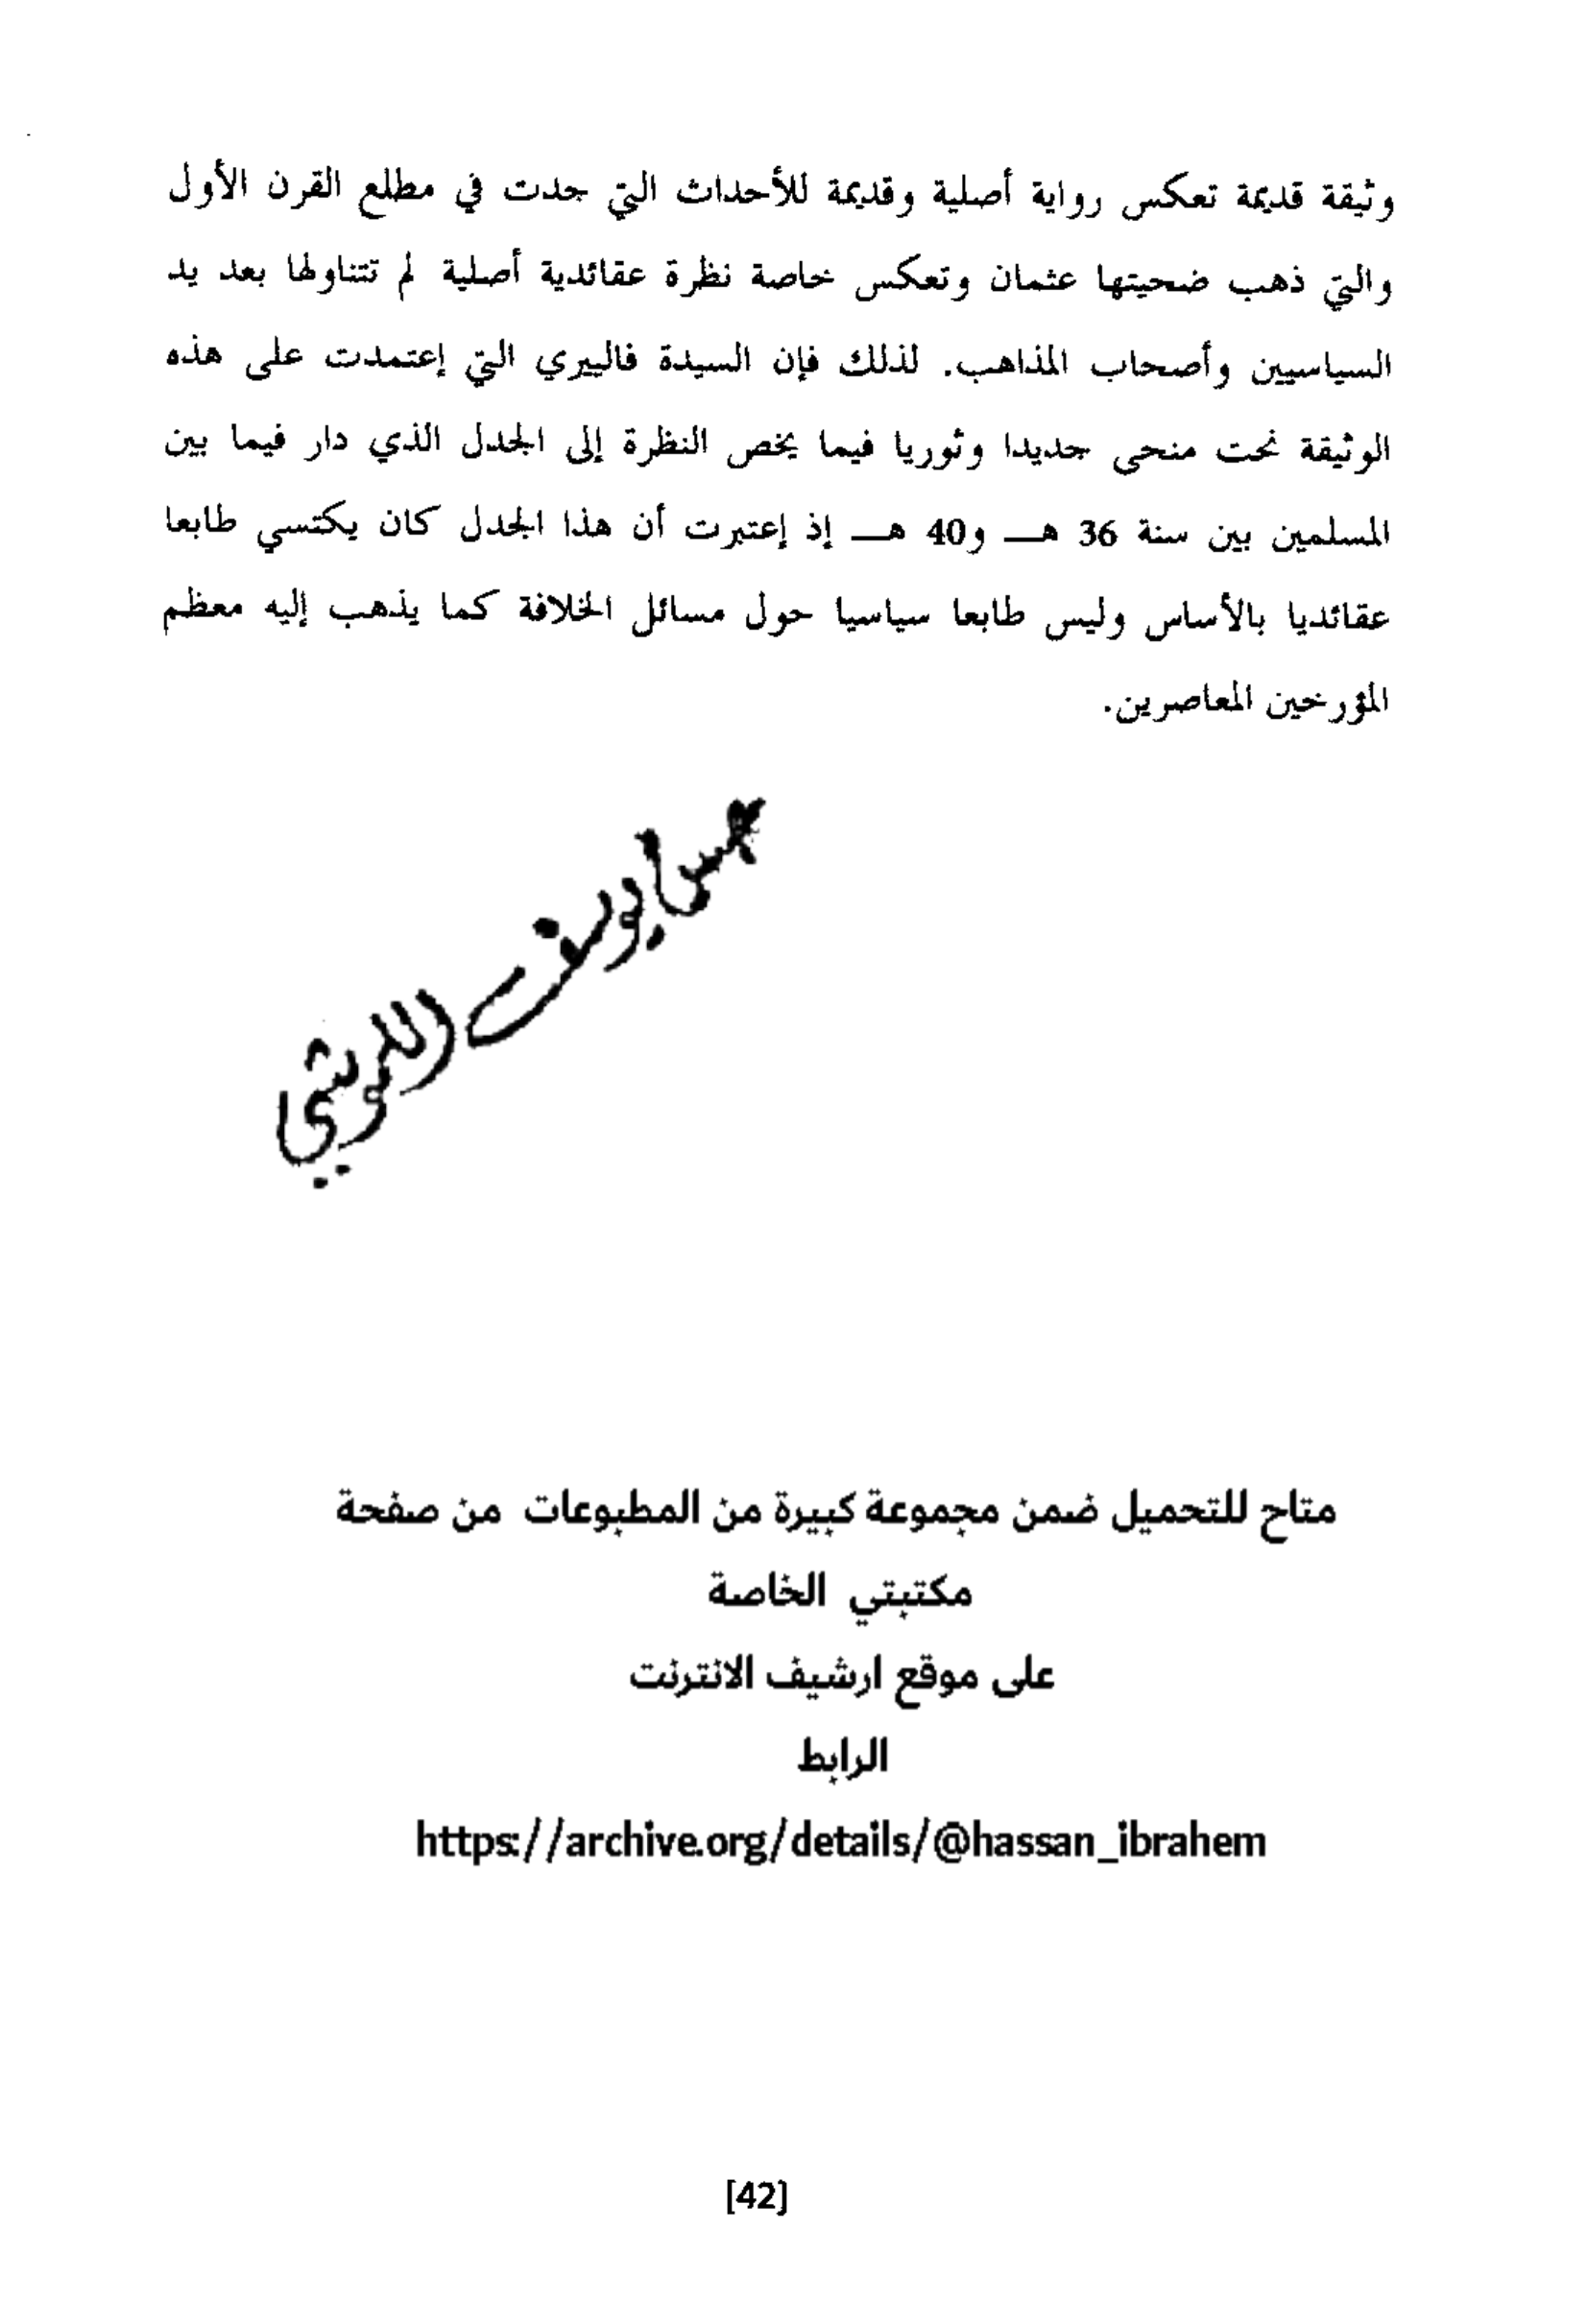 وثيقة قديمة تعكس رواية أصلية وقديمة للأحداث التي جدت في مطلع القرن الأول
والتي ذهب ضحيتها عثمان وتعكس خاصة نظرة عقائدية أصلية لم تتناولها بعد يد
السياسيين وأصحاب المذاهب. لذلك فإن السيدة فاليري التي إعتمدت على هذه
الوثيقة نحت منحى جديدا وثوريا فيما يخص النظرة إلى الجدل الذي دار فيما بين
المسلمين بين سنة 36 هــ و40 هــ إذ إعتبرت أن هذا الجدل كان يكتسي طابعا
عقائديا بالأساس وليس طابعا سياسيا حول مسائل الخلافة كما يذهب إليه معظم
المؤرخين المعاصرين.
يوسف
متاح للتحميل ضمن مجموعة كبيرة من المطبوعات من صفحة
مكتبتي الخاصة
على موقع ارشيف الانترنت
الرابط
https://archive.org/details/@hassan_ibrahem
[42]